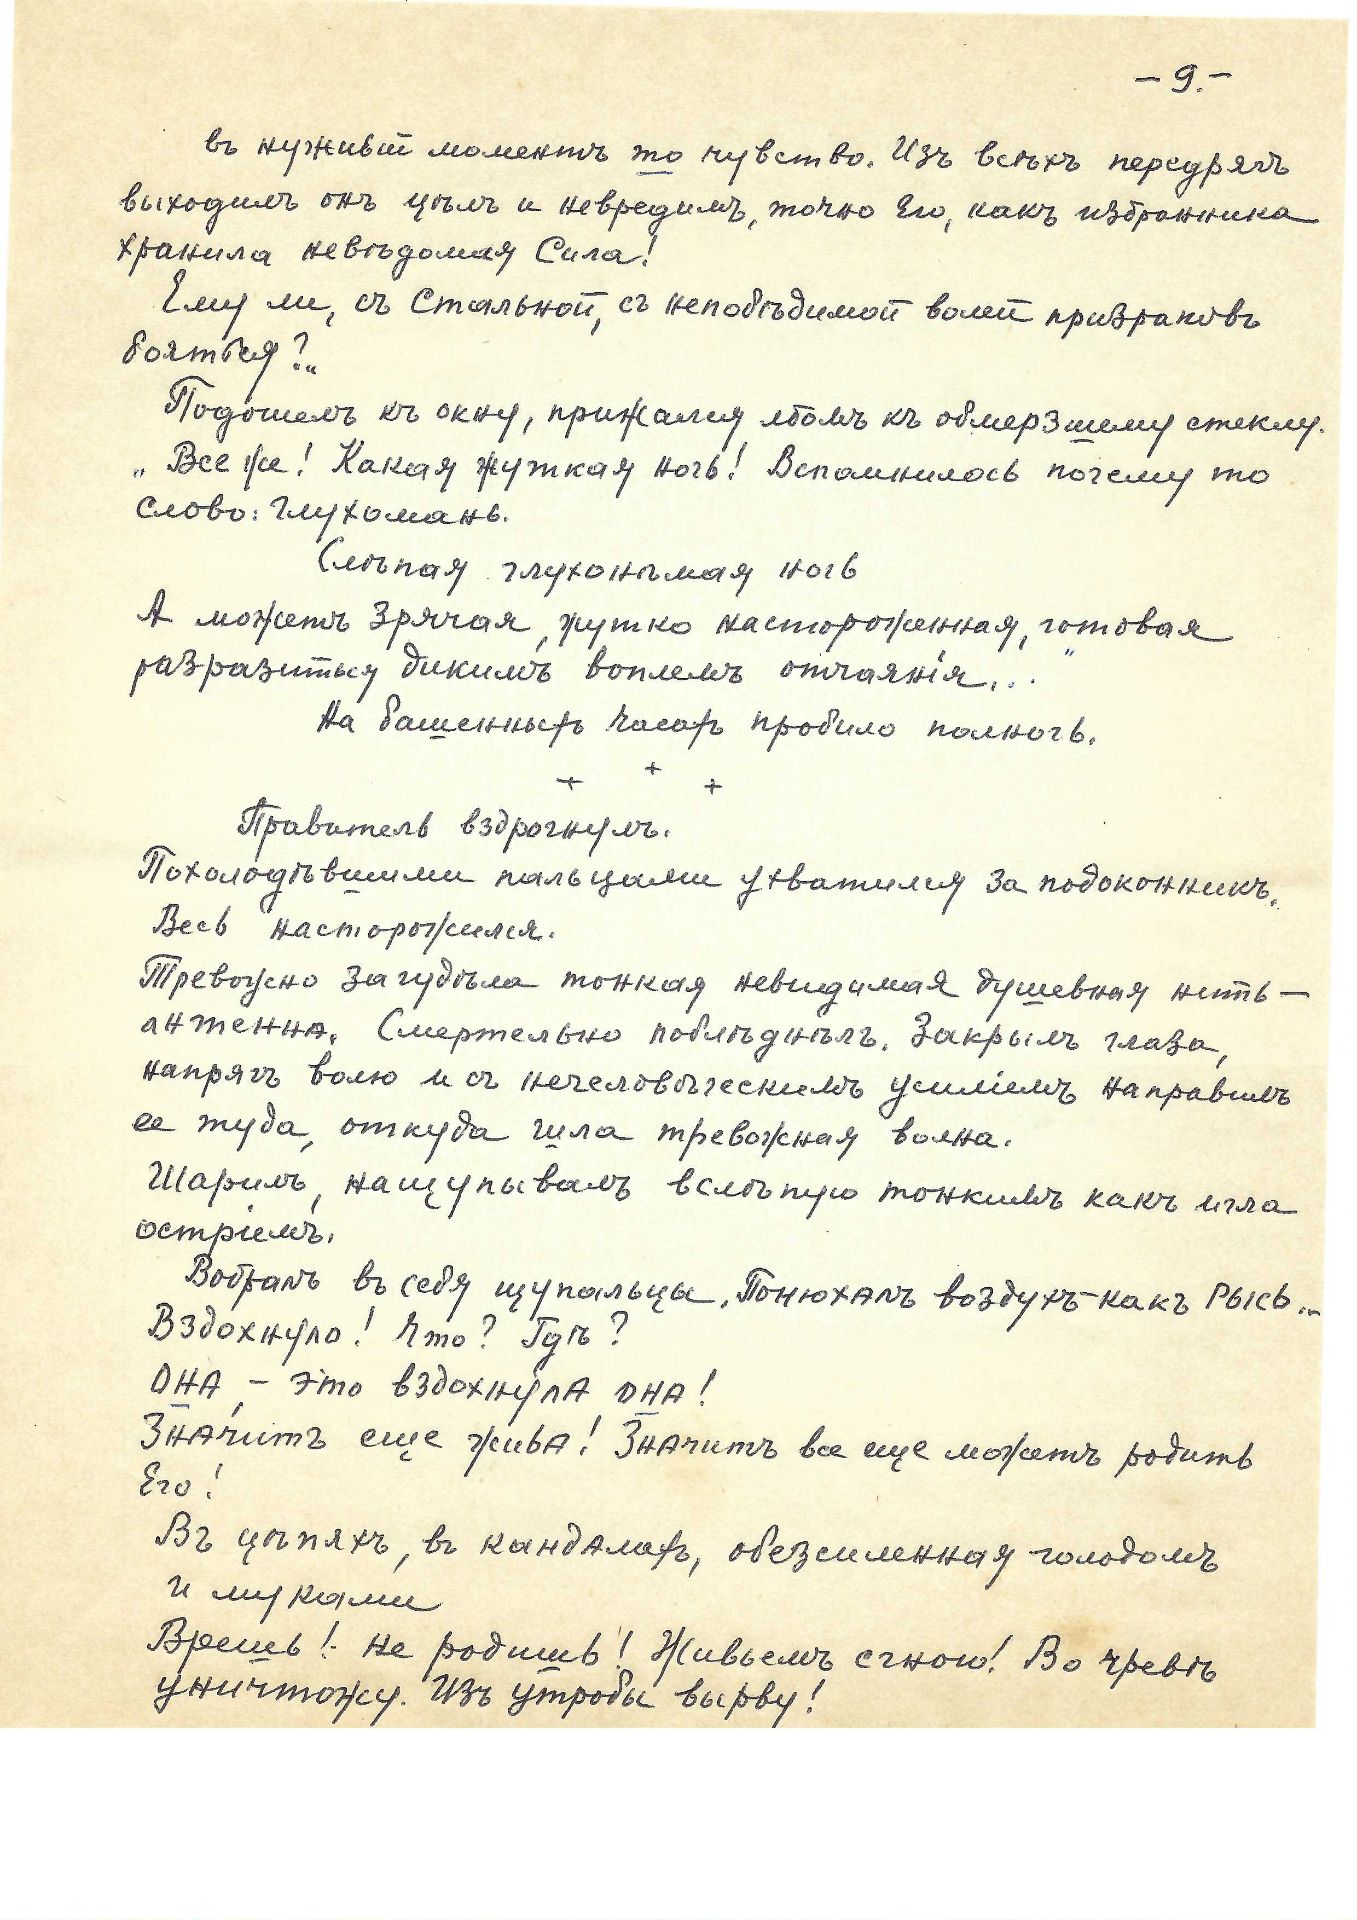 – 9. –
въ нужный моментъ то чувство. Изъ всѣхъ передрягъ
выходилъ онъ цѣлъ и невредимъ, точно Его, какъ избранника
хранила невѣдомая Сила!
Ему ли, съ Стальной, съ непобѣдимой волей призраковъ
бояться?"
Подошелъ къ окну, прижался лбомъ къ обмерзшему стеклу.
„Все же! Какая жуткая ночь! Вспомнилось почему то
слово: глухомань.
Слѣпая глухонѣмая ночь
А можетъ зрячая, жутко настороженная, готовая
разразиться дикимъ воплемъ отчаянія..."
На башенныхъ часахъ пробило полночь.
+ + +
Правитель вздрогнулъ.
Похолодѣвшими пальцами ухватился за подоконникъ.
Весь насторожился.
Тревожно загудѣла тонкая невидимая душевная нить –
антенна. Смертельно поблѣднѣлъ. Закрылъ глаза,
напрягъ волю и съ нечеловѣческимъ усиліемъ направилъ
ее туда, откуда шла тревожная волна.
Шарилъ, нащупывалъ вслѣпую тонкимъ какъ игла
остріемъ.
Вобралъ въ себя щупальцы. Понюхалъ воздухъ – какъ рысь...
Вздохнуло! Что? Гдѣ?
ОНА, – это вздохнула ОНА!
Значитъ еще жива! Значитъ все еще можетъ родить
Его!
Въ цѣпяхъ, въ кандалахъ, обезсиленная голодомъ
и муками
Врешь! Не родишь! Живьемъ сгною! Во чревѣ
уничтожу. Изъ утробы вырву!